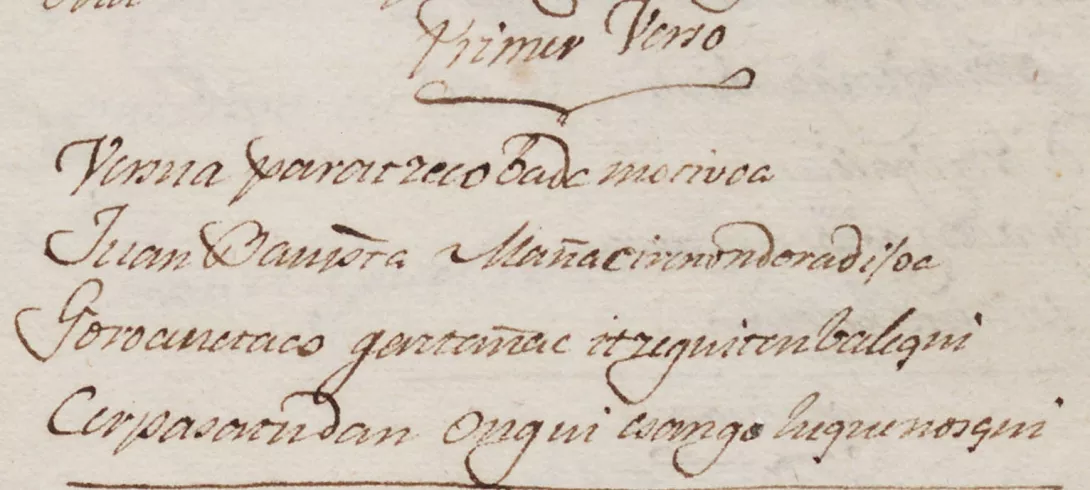 Primer Verso
Versua paratzeco bada motivoa
Juan Bautista Mañac irinonderadisoa
Gorocunetaco gertañac itzeguiten baleqai
Cerpasatudan Ongui esango luque nosqui